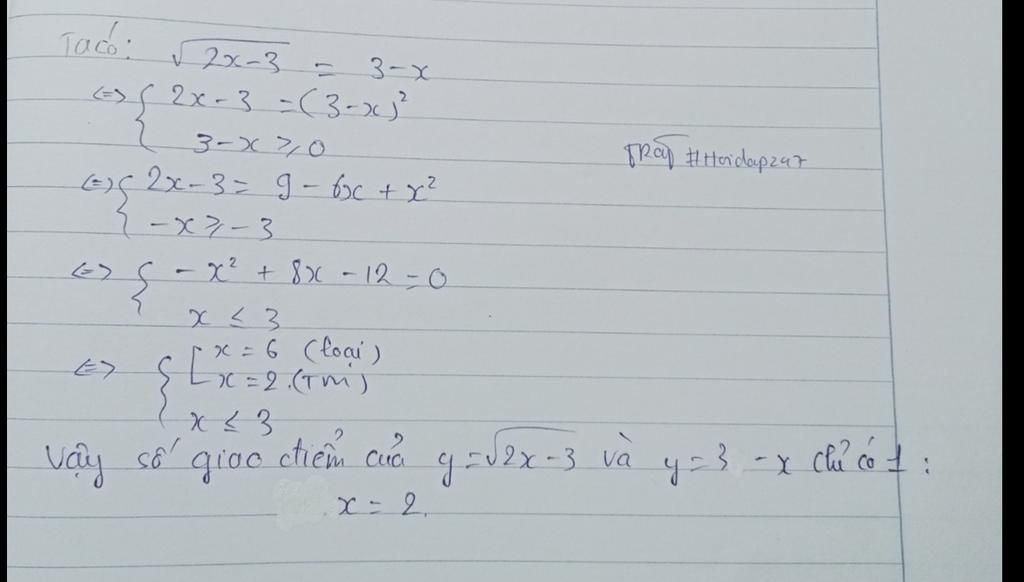 Ta có: √2x-3 = 3-x
<=> { 2x-3 = (3-x)²
3-x ≥ 0
#Hoidap247
<=> { 2x-3 = 9 - 6x + x²
-x ≥ -3
<=> { -x² + 8x - 12 = 0
x ≤ 3
<=> { [ x = 6 (loại)
x = 2 (TM)
x ≤ 3
Vậy số giao điểm của y = √2x-3 và y = 3 - x chỉ có 1 :
x = 2.